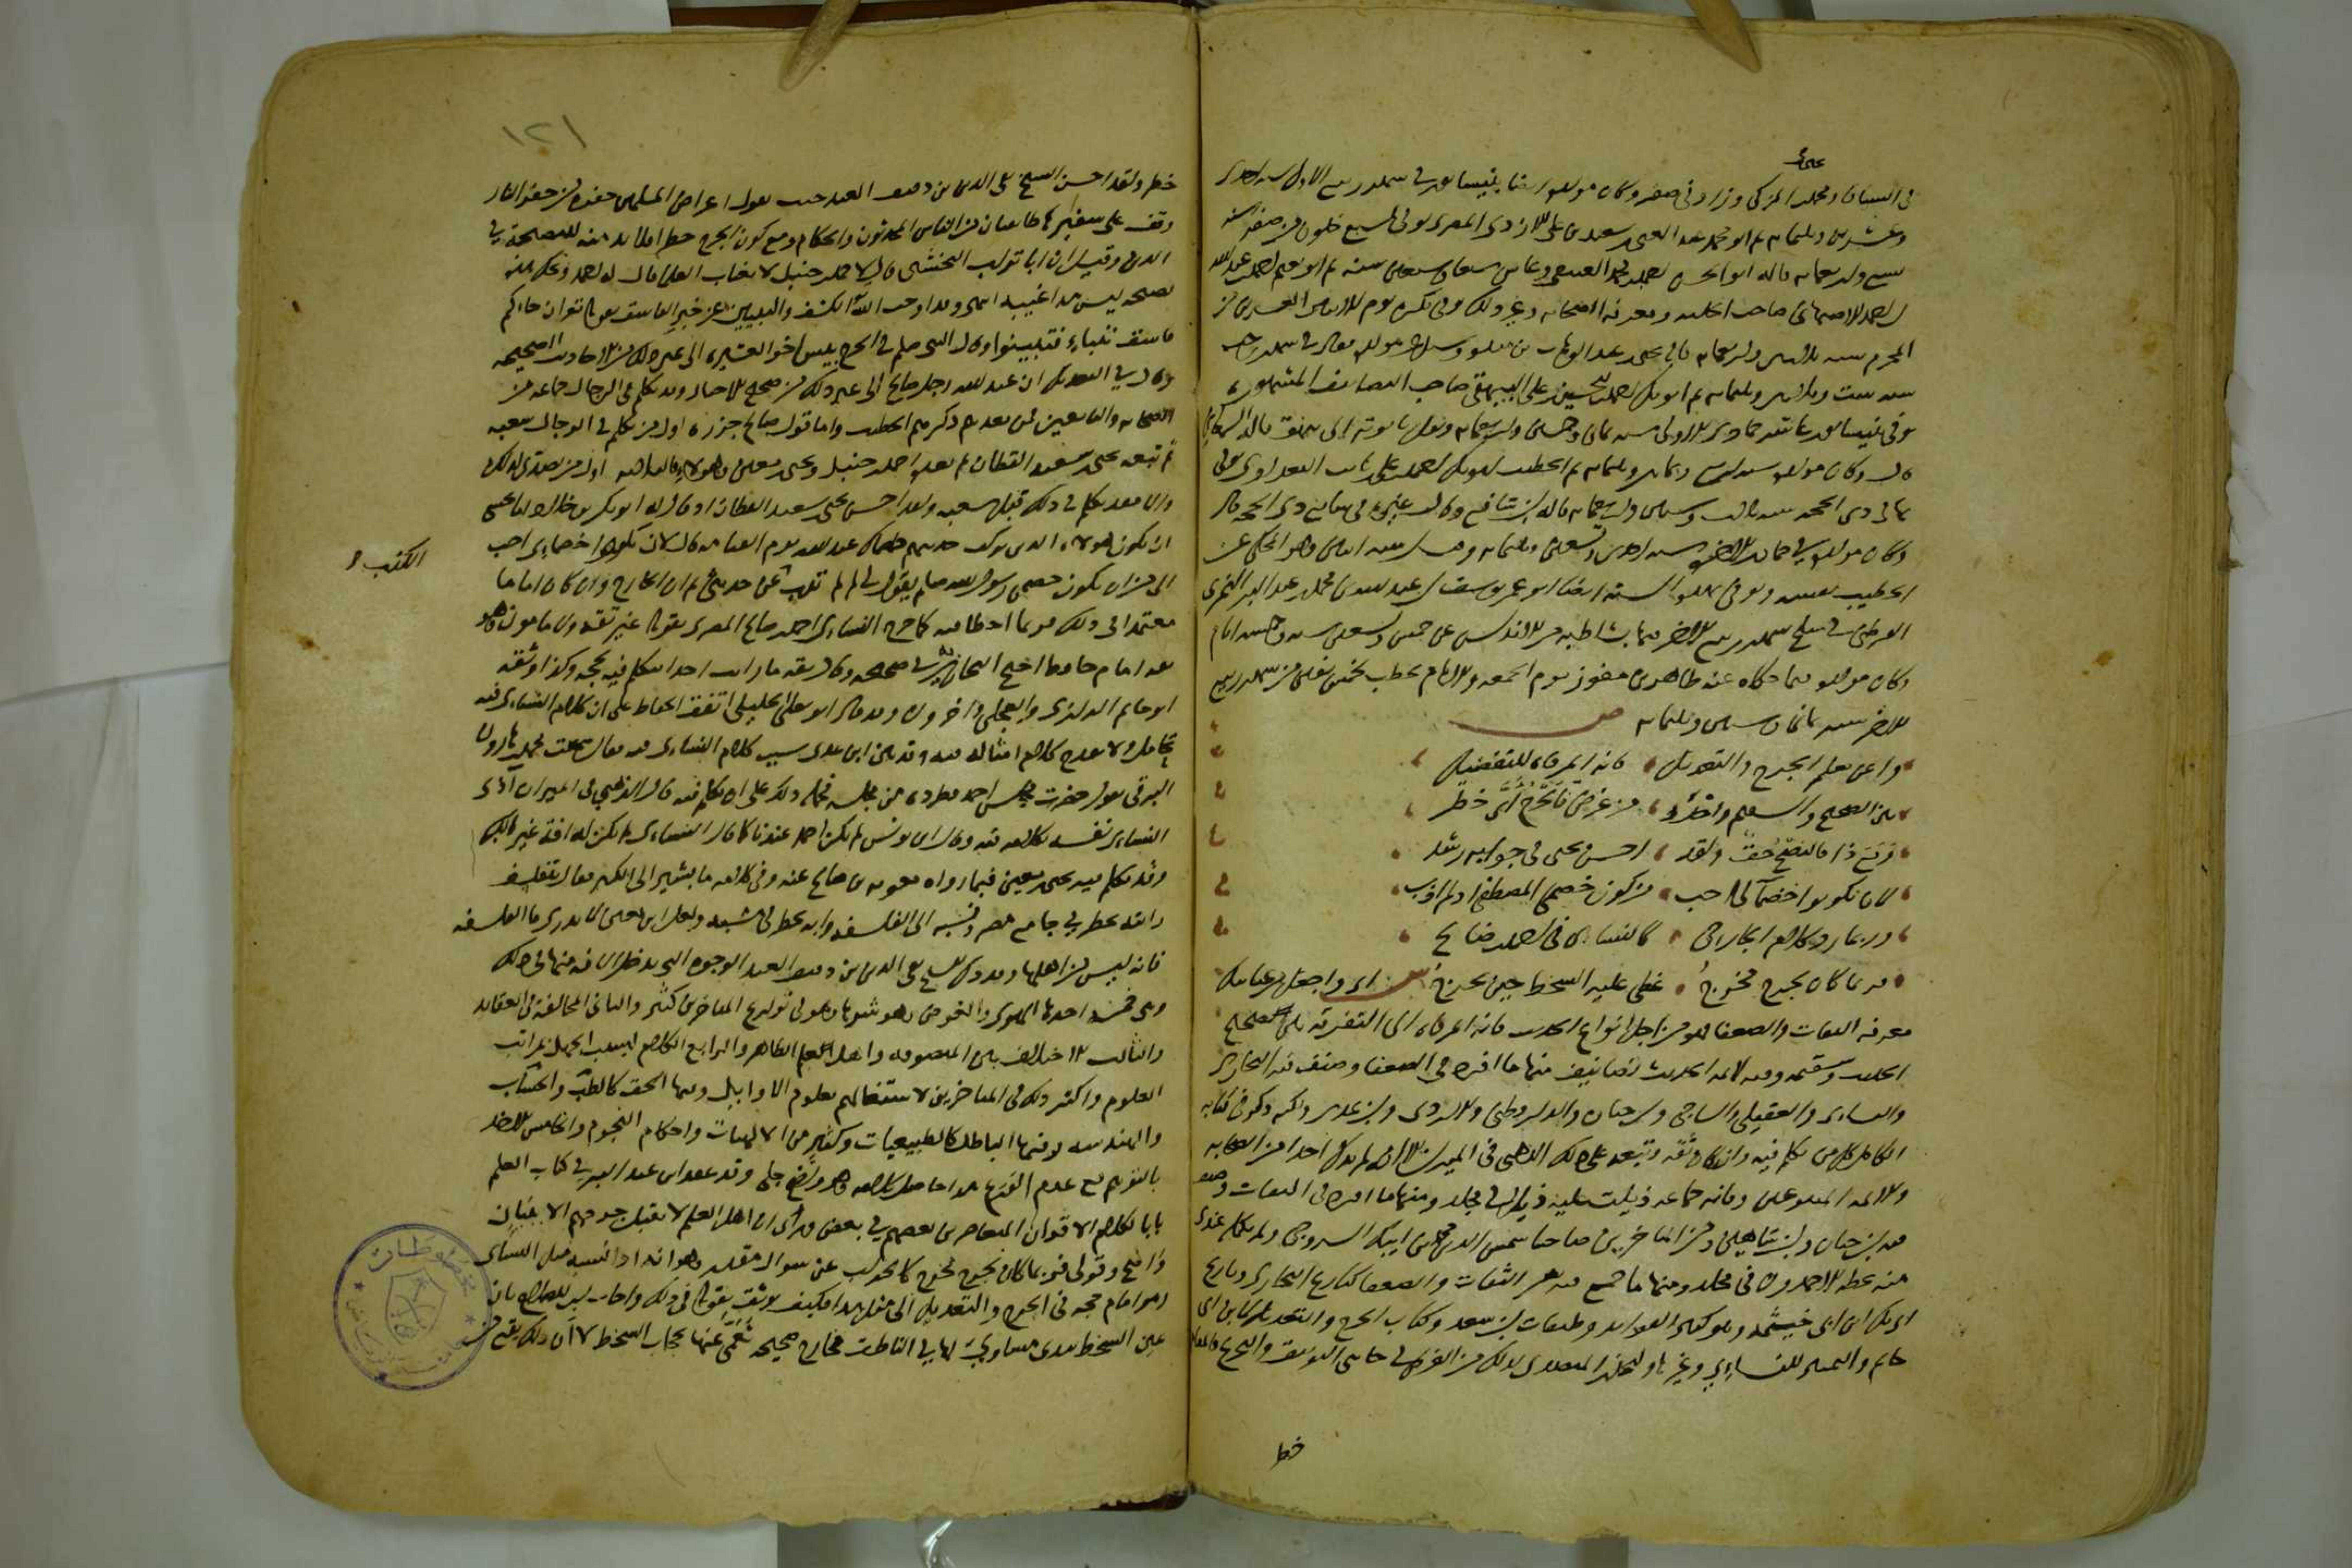 في السياق ومحمد المزكي وزاد في صفر وكان مولده ايضا بنيسابور في شهر ربيع الاول سنه احدى
وعشرين وثلثمايه ثم ابو محمد عبد الغني بن سعيد بن علي الازدي المصري توفي لسبع خلون من صفر سنة
تسع واربعمايه قاله ابو الحسن احمد بن محمد العتيقي وعاش سبعا وسبعين سنه ثم ابو نعيم احمد بن عبد الله
بن احمد الاصبهاني صاحب الحليه ومعرفه الصحابه وغير ذلك توفي بكره يوم الاثنين العشرين من
المحرم سنه ثلاثين واربعمايه قاله يحيى بن عبد الوهاب بن منده وسئل عن مولده فقال في شهر رجب
سنه ست وثلاثين وثلثمايه ثم ابو بكر احمد بن الحسين بن علي البيهقي صاحب التصانيف المشهوره
توفي بنيسابور عاشر جمادى الاولى سنه ثمان وخمسين واربعمايه ونقل تابوته الى بيهق قاله السمعاني
قال وكان مولده سنه اربع وثمانين وثلثمايه ثم الخطيب ابو بكر احمد بن علي بن ثابت البغدادي توفي
بها في ذي الحجه سنه ثلاث وستين واربعمايه قاله ابن شافع وقال غيره في سابع ذي الحجه قال
وكان مولده في جمادى الاخره سنه احدى وتسعين وثلثمايه وقيل سنه اثنتين وهو المحكي عن
الخطيب نفسه وتوفي في هذه السنة ايضا ابو عمر يوسف بن عبد الله بن محمد بن عبد البر النمري
القرطبي في سلخ شهر ربيع الاخر منها بشاطبه من الاندلس عن خمس وتسعين سنه وخمسه ايام
وكان مولده فيما حكاه عنه طاهر بن مفوز يوم الجمعه والامام يخطب لخمس بقين من شهر ربيع
الاخر سنه ثمان وستين وثلثمايه ص
واعن بعلم الجرح والتعديل فانه المرقاه للتفضيل
بين الصحيح والسقيم واحذر من غرض فالجرح اي خطر
ومع ذا فالنصح حق ولقد احسن يحيى في جوابه وسد
لان يكونوا خصما لي احب من كون خصمي المصطفى اذ لم اذب
وربما رد كلام الجارح كالنسائي في احمد بن صالح
فربما كان لجرح مخرج غطى عليه السخط حين يحرج ش اي واجعل من عنايتك
معرفه الثقات والضعفا فهو من اجل انواع الحديث فانه المرقاه الى التفرقه بين صحيح
الحديث وسقيمه وفيه لائمه الحديث تصانيف منها ما افرد في الضعفا وصنف فيه البخاري
والنسائي والعقيلي والساجي وابن حبان والدارقطني والازدي وابن عدي ولكنه ذكر في كتابه
الكامل كل من تكلم فيه وان كان ثقه وتبعه على ذلك الذهبي في الميزان الا انه لم يذكر احدا من الصحابه
والائمه المتبوعين وفاته جماعه ذيلت عليه ذيلا في مجلد ومنها ما افرد في الثقات وصنف
فيه ابن حبان وابن شاهين ومن المتاخرين صاحبنا شمس الدين محمد بن ايبك السروجي ولم يكمله عندي
منه بخطه الاحمدون في مجلد ومنها ما جمع فيه بين الثقات والضعفا كتاريخ البخاري وتاريخ
ابي بكر ابن ابي خيثمه وهو كثير الفوايد وطبقات ابن سعد وكتاب الجرح والتعديل لابن ابي
حاتم والتمييز للنسائي وغيرها وليحذر المتصدي لذلك من الغرض في جانبي التوثيق والجرح فالمقام
خطر
١٢١
خطر ولقد احسن الشيخ تقي الدين بن دقيق العيد حيث يقول اعراض المسلمين حفره من حفر النار
وقف على شفيرها طايفتان من الناس المحدثون والحكام ومع كون الجرح خطرا فلا بد منه للنصيحة في
الدين وقيل ان ابا تراب النخشبي قال لاحمد بن حنبل لا تغتاب العلما فقال له احمد ويحك هذه
نصيحه ليس هذا غيبه انتهى وقد اوجب الله الكشف والتبيين عن خبر الفاسق بقوله تعالى ان جاءكم
فاسق بنبإ فتبينوا وقال النبي صلعم في الجرح بئس اخو العشيره الى غير ذلك من الاحاديث الصحيحه
وقال في التعديل ان عبد الله رجل صالح الى غير ذلك من صحيح الاخبار وقد تكلم في الرجال جماعه من
الصحابه والتابعين فمن بعدهم ذكرهم الخطيب واما قول صالح جزره اول من تكلم في الرجال شعبه
ثم تبعه يحيى بن سعيد القطان ثم بعده احمد بن حنبل ويحيى بن معين وهولاء فالمراد به اول من تصدى لذلك
والا فقد تكلم في ذلك قبل شعبه ولقد احسن يحيى بن سعيد القطان اذ قال له ابو بكر بن خلاد اما تخشى
ان يكون هولاء الذين تركت حديثهم خصماك عند الله يوم القيامه فقال لان يكونوا خصمائي احب
الي من ان يكون خصمي رسول الله صلعم يقول لي لم لم تذب الكذب عن حديثي ثم ان الجارح وان كان اماما
معتمدا في ذلك فربما اخطا فيه كما جرح النسائي احمد بن صالح المصري بقوله غير ثقه ولا مامون وهو
ثقه امام حافظ احتج به البخاري في صحيحه وقال ثقه ما رايت احدا يتكلم فيه بحجه وكذا وثقه
ابو حاتم الرازي والعجلي واخرون وقد قال ابو يعلى الخليلي اتفق الحفاظ على ان كلام النسائي فيه
تحامل ولا يقدح كلام امثاله فيه وقد بين ابن عدي سبب كلام النسائي فيه فقال سمعت محمد بن هارون
البرقي يقول حضرت مجلس احمد فطرده من مجلسه فحمله ذلك على ان تكلم فيه قال الذهبي في الميزان اذى
النسائي نفسه بكلامه فيه وقال ابن يونس لم يكن احمد عندنا كما قال النسائي لم يكن له افة غير الكبر
وقد تكلم فيه يحيى بن معين فيما رواه معويه بن صالح عنه وفي كلامه ما يشير الى الكبر فقال يتفلسف
رايته يخطر في جامع مصر فنسبه الى الفلسفه وانه يخطر في مشيه ولعل ابن معين لا يدري ما الفلسفه
فانه ليس من اهلها وقد ذكر الشيخ تقي الدين بن دقيق العيد الوجوه التي تدخل الافه منها في ذلك
وهي خمسه احدها الهوى والغرض وهو شرها وهو في تواريخ المتاخرين كثير والثاني المخالفة في العقايد
والثالث الاختلاف بين المتصوفه واهل العلم الظاهر والرابع الكلام بسبب الجهل بمراتب
العلوم واكثر ذلك في المتاخرين لاشتغالهم بعلوم الاوايل وفيها الحق كالطب والحساب
والهندسه وفيها الباطل كالطبيعيات وكثير من الالهيات واحكام النجوم والخامس الاخذ
بالتوهم مع عدم الورع هذا حاصل كلامه وهو واضح جلي وقد عقد ابن عبد البر في كتاب العلم
بابا لكلام الاقران المتعاصرين بعضهم في بعض ورأى ان اهل العلم لا يقبل جرحهم الا ببيان
واضح وقولي فربما كان لجرح مخرج كالجواب عن سوال مقدر وهو انه اذا نسب مثل النسائي
وهو امام حجه في الجرح والتعديل الى مثل هذا فكيف يوثق بقوله في ذلك واجاب ابن الصلاح بان
عين السخط تبدي مساوي لها في الباطن مخارج صحيحه تعمى عنها بحجاب السخط لا ان ذلك يقع من
الكذب